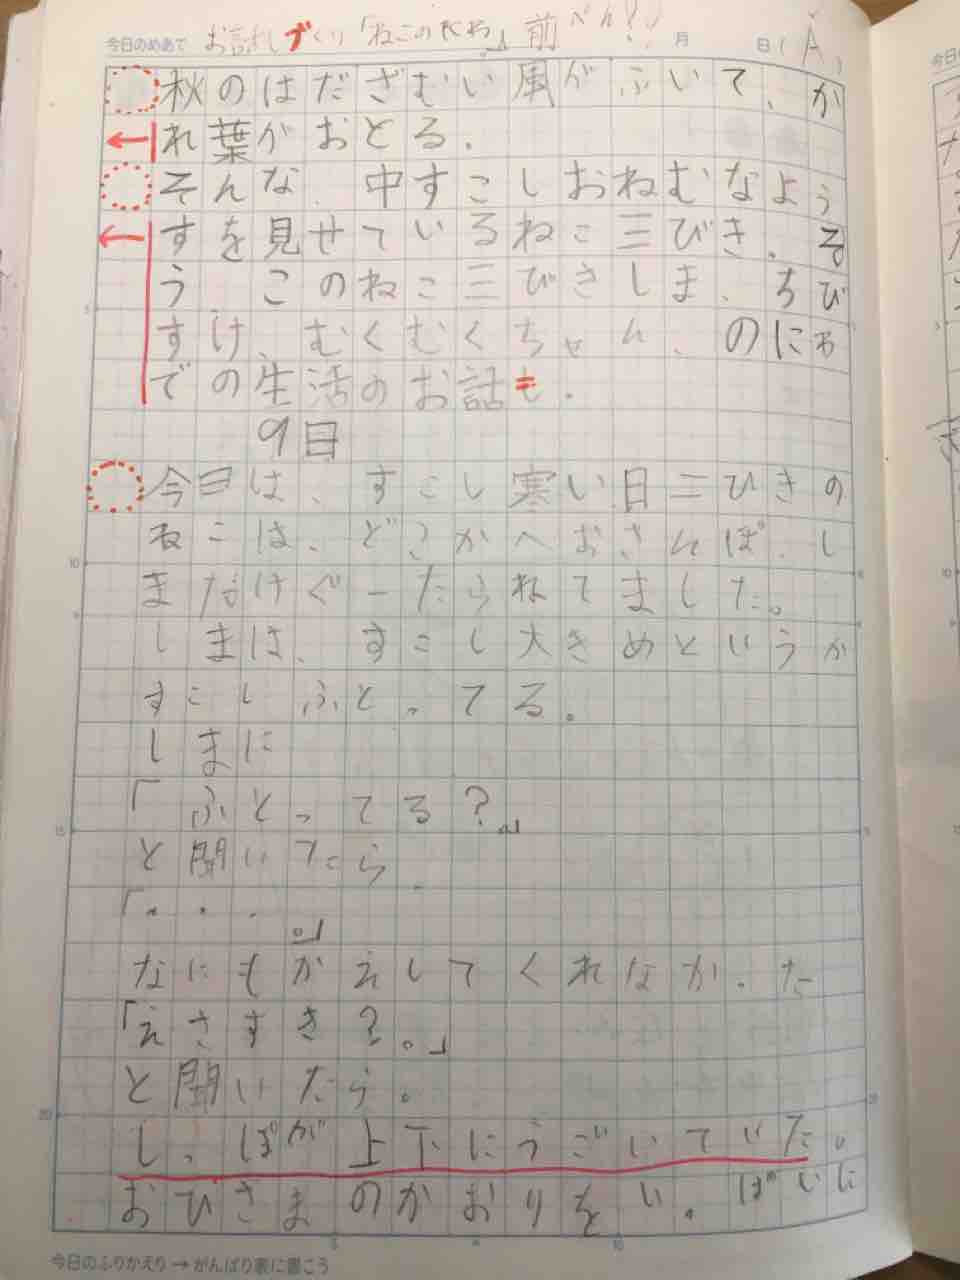 今日のめあて お話しづくり「ねこのため」前ぺん!! 月 日( )
秋のはだざむい風がふいて、か
れ葉がおどる.
そんな 中すこしおねむなよう
すを見せているねこ三びき.そ
う、このねこ三びきしま、ちび
すけ、むくむくちゃん、のにわ
での生活のお話も.
9日
今日は、すこし寒い日二ひきの
ねこは、どこかへおさんぽ.し
まだけぐーたらねてました。
しまは、すこし大きめというか
すこしふとってる。
しまに
「ふとってる?」
と聞いたら.
「・・・。」
なにもかえしてくれなかった
「えさすき?。」
と聞いたら。
しっぽが上下にうごいていた。
おひさまのかおりをいっぱいに
今日のふりかえり→がんばり表に書こう
5
10
15
20